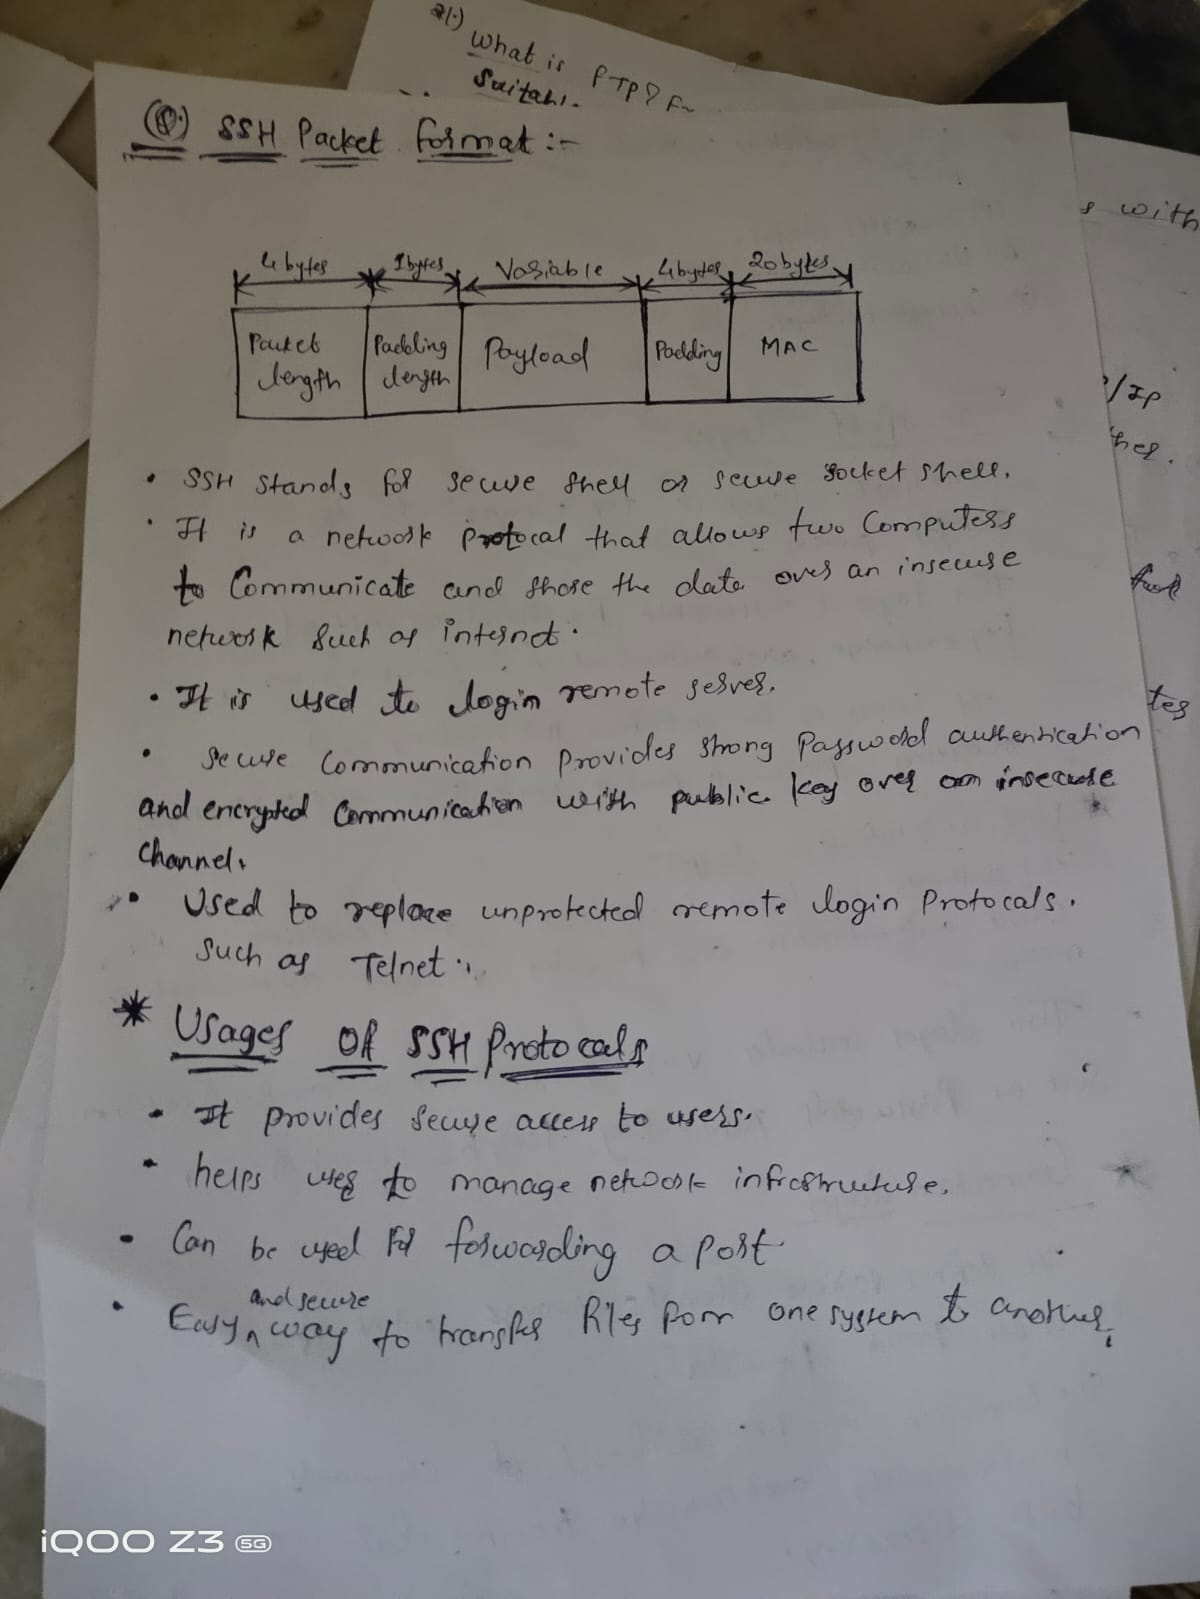 21.)
What is FTP? Ex
Suitabl.
(8.) SSH Packet format :-
s with
4 bytes 1 bytes Variable 4 bytes 20 bytes
Packet length Padding length Payload Padding MAC
P/IP
ther.
• SSH stands for secure shell or secure socket shell.
• It is a network protocal that allows two Computers
to Communicate and share the data over an insecure
network such as internet.
• It is used to login remote server.
tes
• Secure Communication provides strong Password authentication
and encrypted Communication with public key over an insecure
Channel.
• Used to replace unprotected remote login Protocals.
such as Telnet.
* Usages Of SSH Protocals
• It provides secure access to users.
• helps user to manage network infrastructure.
• Can be used for forwarding a port
• Easy and secure way to transfer files from one system to another.
iQOO Z3 5G